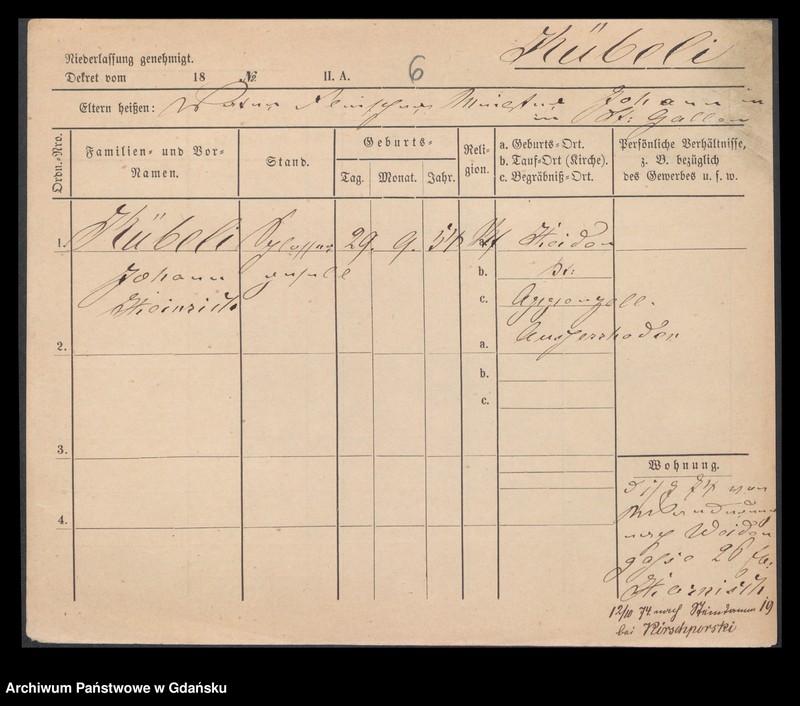 Kübeli
Niederlassung genehmigt.
Dekret vom 18 No. II. A. 6
Eltern heißen: Johann in
in St: Gallen
Ordn.-Nro.
Familien- und Vor-
Namen.
Stand.
Geburts-
Tag. Monat. Jahr.
Reli-
gion.
a. Geburts-Ort.
b. Tauf-Ort (Kirche).
c. Begräbniß-Ort.
Persönliche Verhältnisse,
z. B. bezüglich
des Gewerbes u. s. w.
1. Kübeli Schlosser 29. 9. 54 a. Heiden
Johann geselle b. St:
Heinrich c. Appenzell.
2. a. Ausserrhoden
b.
c.
3.
4.
Wohnung.
74 von
nach Weiden
gasse 26 bei
12/10 74 nach Steindamm 19
bei Kirschporski
Archiwum Państwowe w Gdańsku